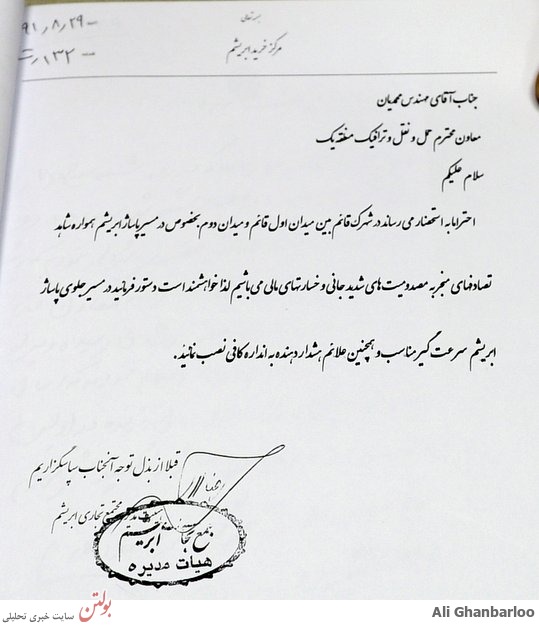 بسمه تعالی
مرکز خرید ابریشم
۹۱٫۸٫۲۹
۱۳۲
جناب آقای مهندس محمدیان
معاون محترم حمل و نقل و ترافیک منطقه یک
سلام علیکم
احتراما به استحضار می رساند در شهرک قائم بین میدان اول قائم و میدان دوم بخصوص در مسیر پاساژ ابریشم همواره شاهد
تصادفهای منجر به مصدومیت های شدید جانی و خسارتهای مالی می باشیم لذا خواهشمند است دستور فرمائید در مسیر جلوی پاساژ
ابریشم سرعت گیر مناسب و همچنین علائم هشدار دهنده به اندازه کافی نصب نمائید.
قبلا از بذل توجه آنجناب سپاسگزاریم
مجتمع تجاری ابریشم
مجتمع تجاری ابریشم
هیات مدیره
بولتن سایت خبری تحلیلی
Ali Ghanbarloo